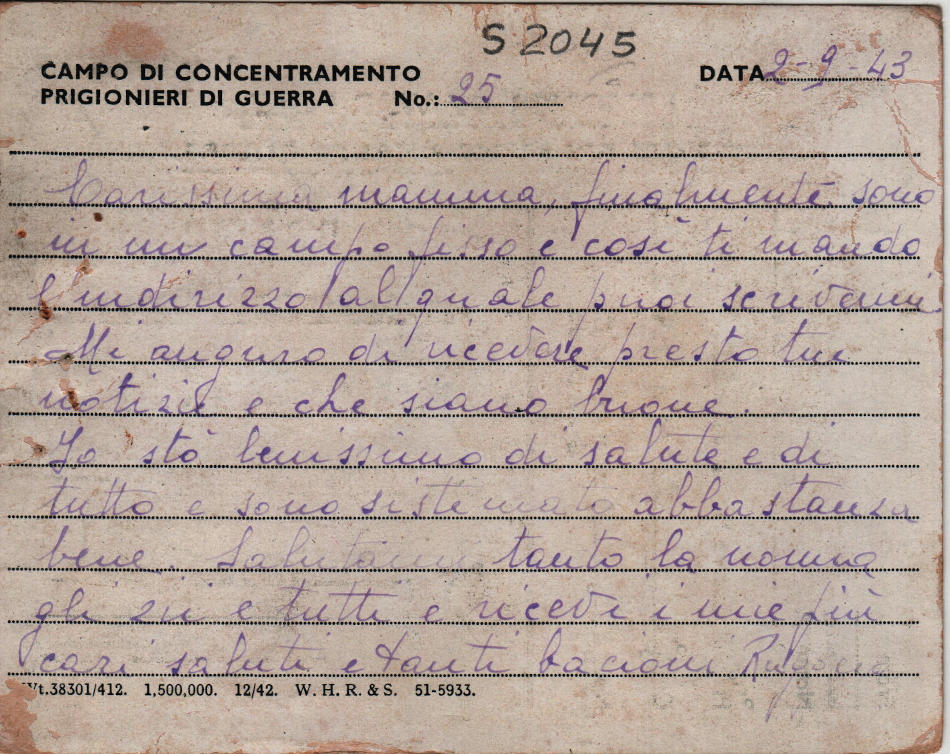 S 2045
CAMPO DI CONCENTRAMENTO
PRIGIONIERI DI GUERRA No.: 25
DATA 2-9-43
Carissima mamma, finalmente sono
in un campo fisso e così ti mando
l'indirizzo al quale puoi scrivermi
Mi auguro di ricevere presto tue
notizie e che siano buone.
Io stò benissimo di salute e di
tutto e sono sistemato abbastanza
bene. Salutami tanto la nonna
gli zii e tutti e ricevi i miei più
cari saluti e tanti bacioni
Wt.38301/412. 1,500,000. 12/42. W. H. R. & S. 51-5933.